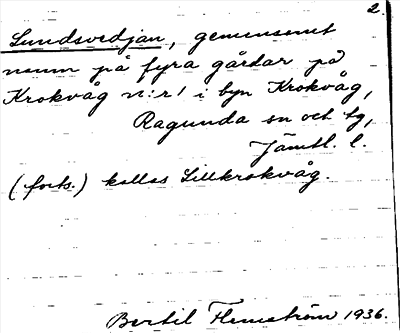 2.
Lundsvedjan, gemensamt
namn på fyra gårdar på
Krokvåg n:r 1 i byn Krokvåg,
Ragunda sn och tg,
Jämtl. l.
(forts.) kallas Lillkrokvåg.
Bertil Flemström 1936.